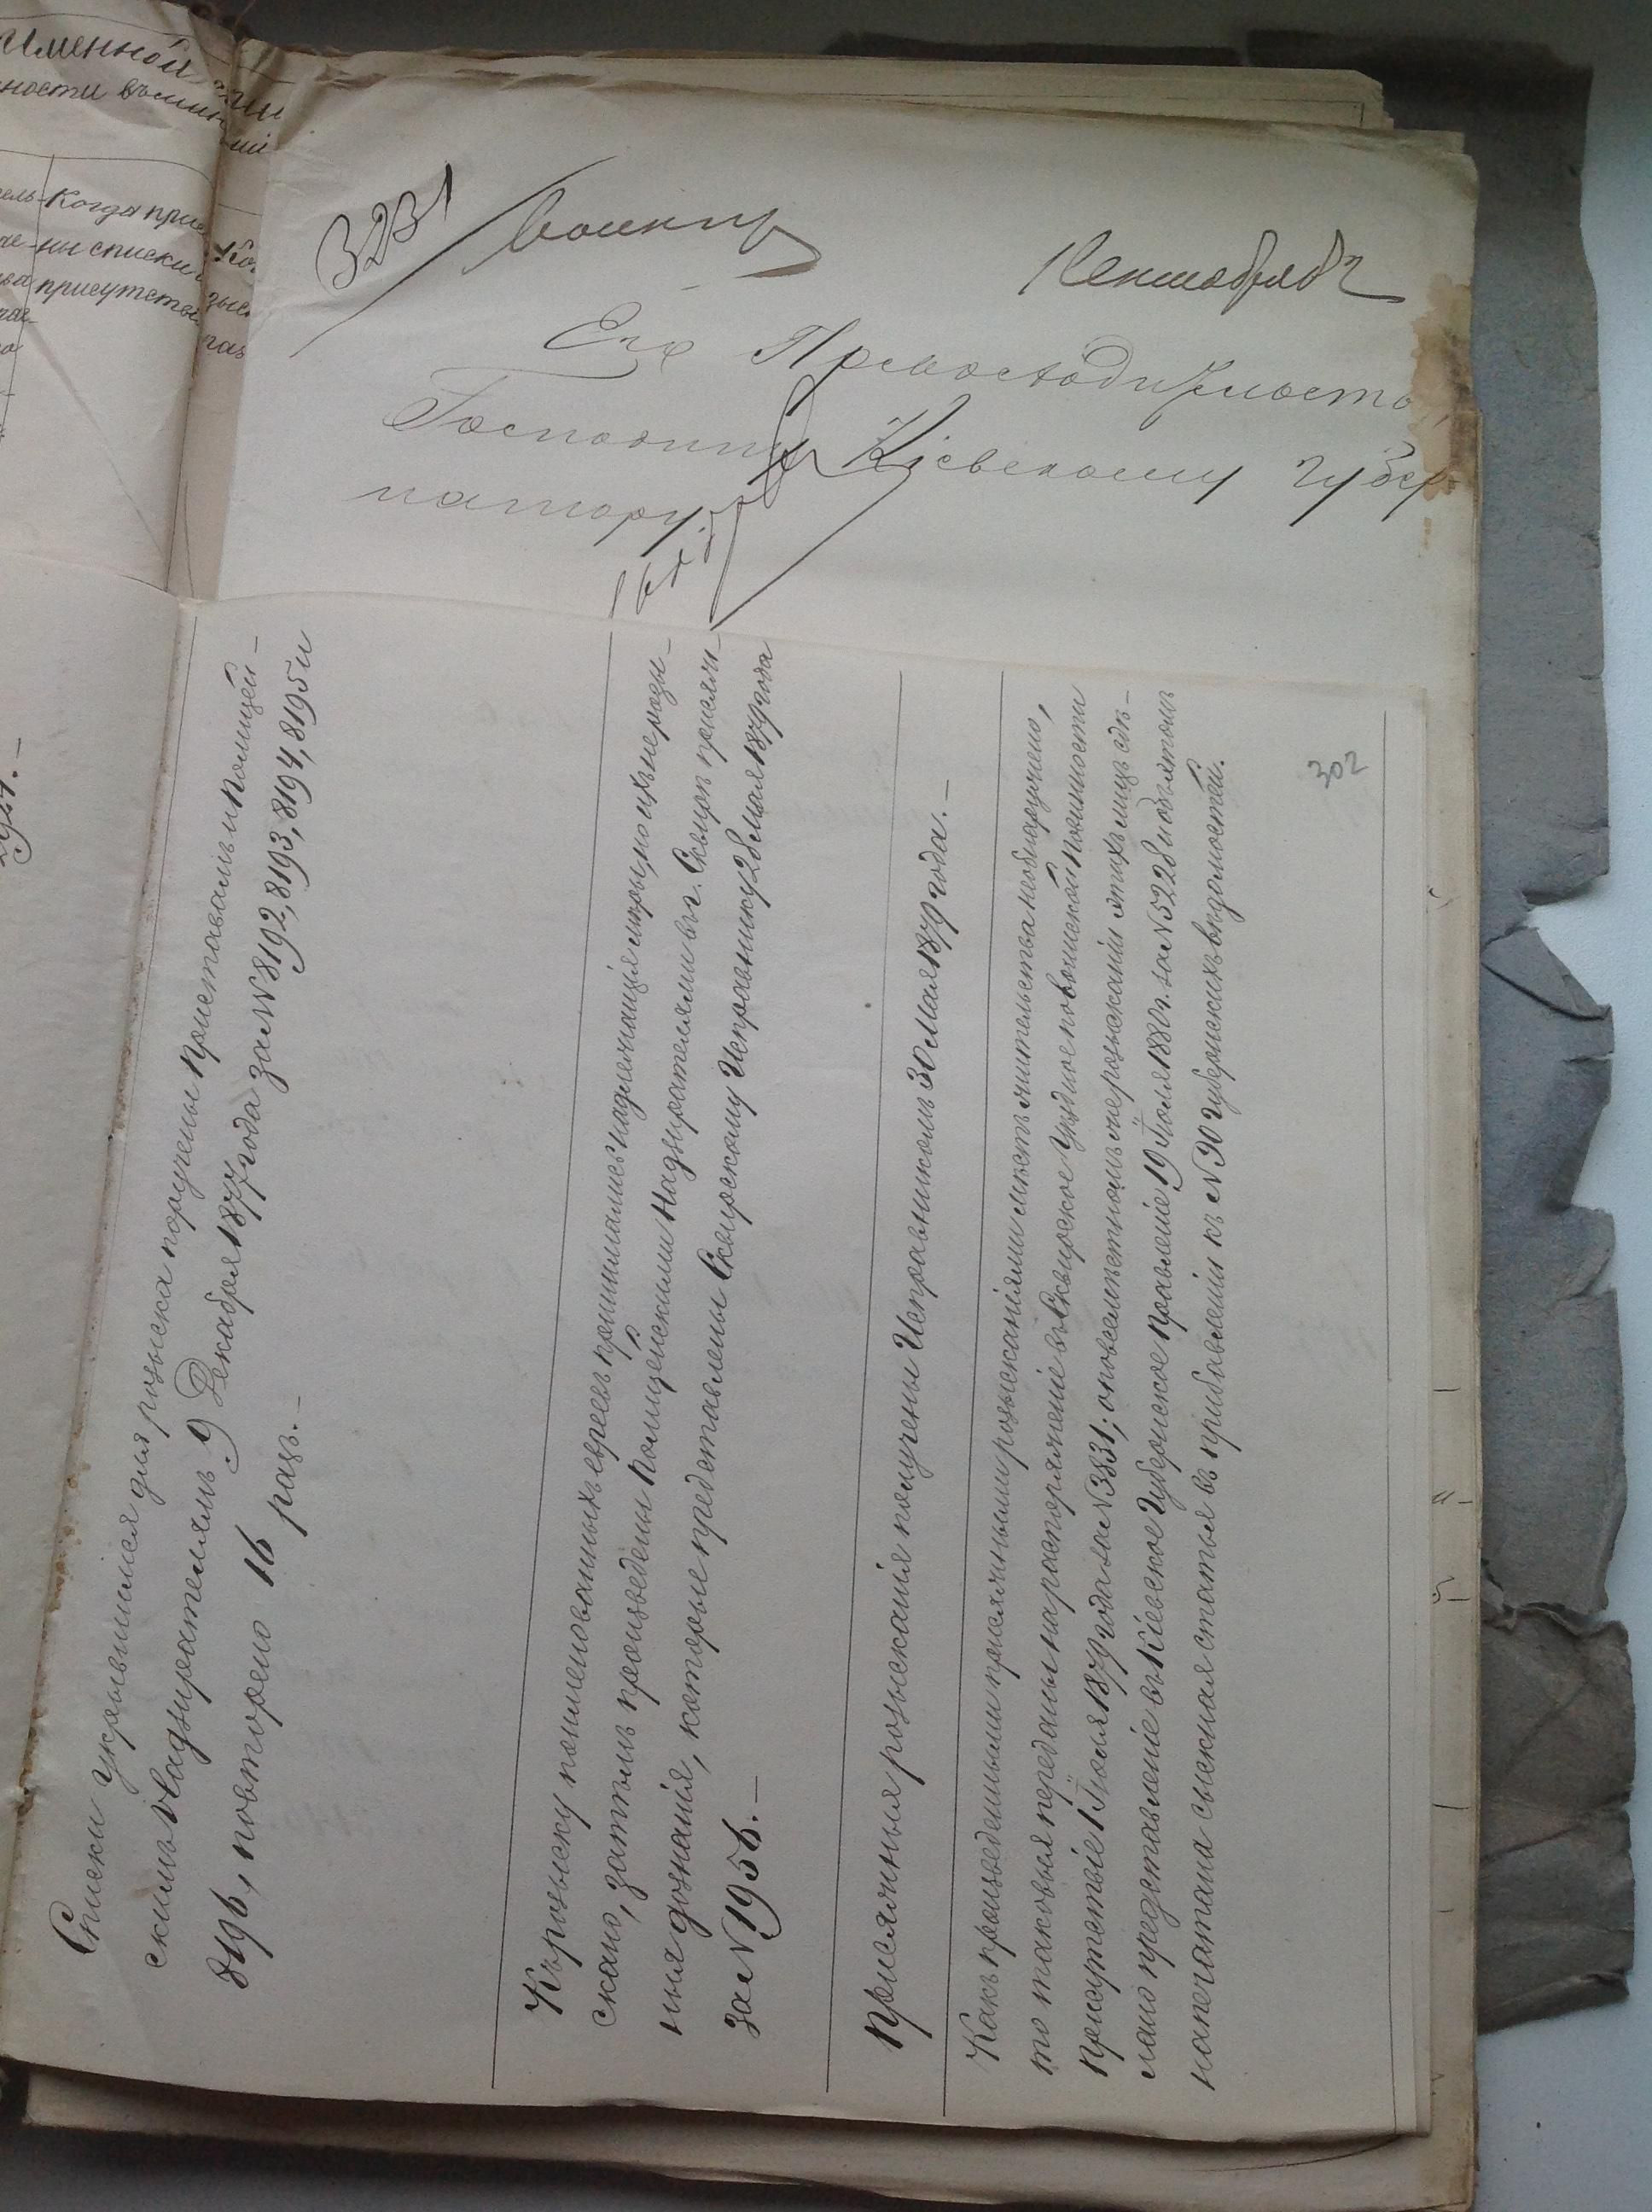 Именной
ности воинс
Когда при
ны списки
присутств
3231
Воинск
Сентября 2
Его Превосходительству,
Господину Кіевскому Губер
натору.
Списки укрывшихся для розыска поручены Приставамъ и Полицей-
скимъ Надзирателямъ 9 Декабря 1877 года за №8192, 8193, 8194, 8195 и
8196, повторено 16 разъ.-
Къ розыску поименованныхъ евреевъ принимались надлежащія мѣры, но ихъ не розы-
скано, затѣмъ произведены Полицейскими Надзирателями въ г. Сквирѣ присяж-
ныя дознанія, которые представлены Сквирскому Исправнику 28 Мая 1879 года
за №1956.-
Присяжныя розысканія получены Исправникомъ 30 Мая 1879 года.-
Какъ произведенными присяжными розысканіями мѣстъ жительства не обнаружено,
то таковыя переданы на распоряженіе въ Сквирское Уѣздное по воинской повинности
Присутствіе 1 Іюля 1879 года за №3831; о повсемѣстномъ же розысканіи этихъ лицъ сдѣ-
лано представленіе въ Кіевское Губернское Правленіе 19 Іюля 1880 г. за №5228 и объ этомъ
напечатана сыскная статья въ прибавленіи къ №90 губернскихъ вѣдомостей.
302